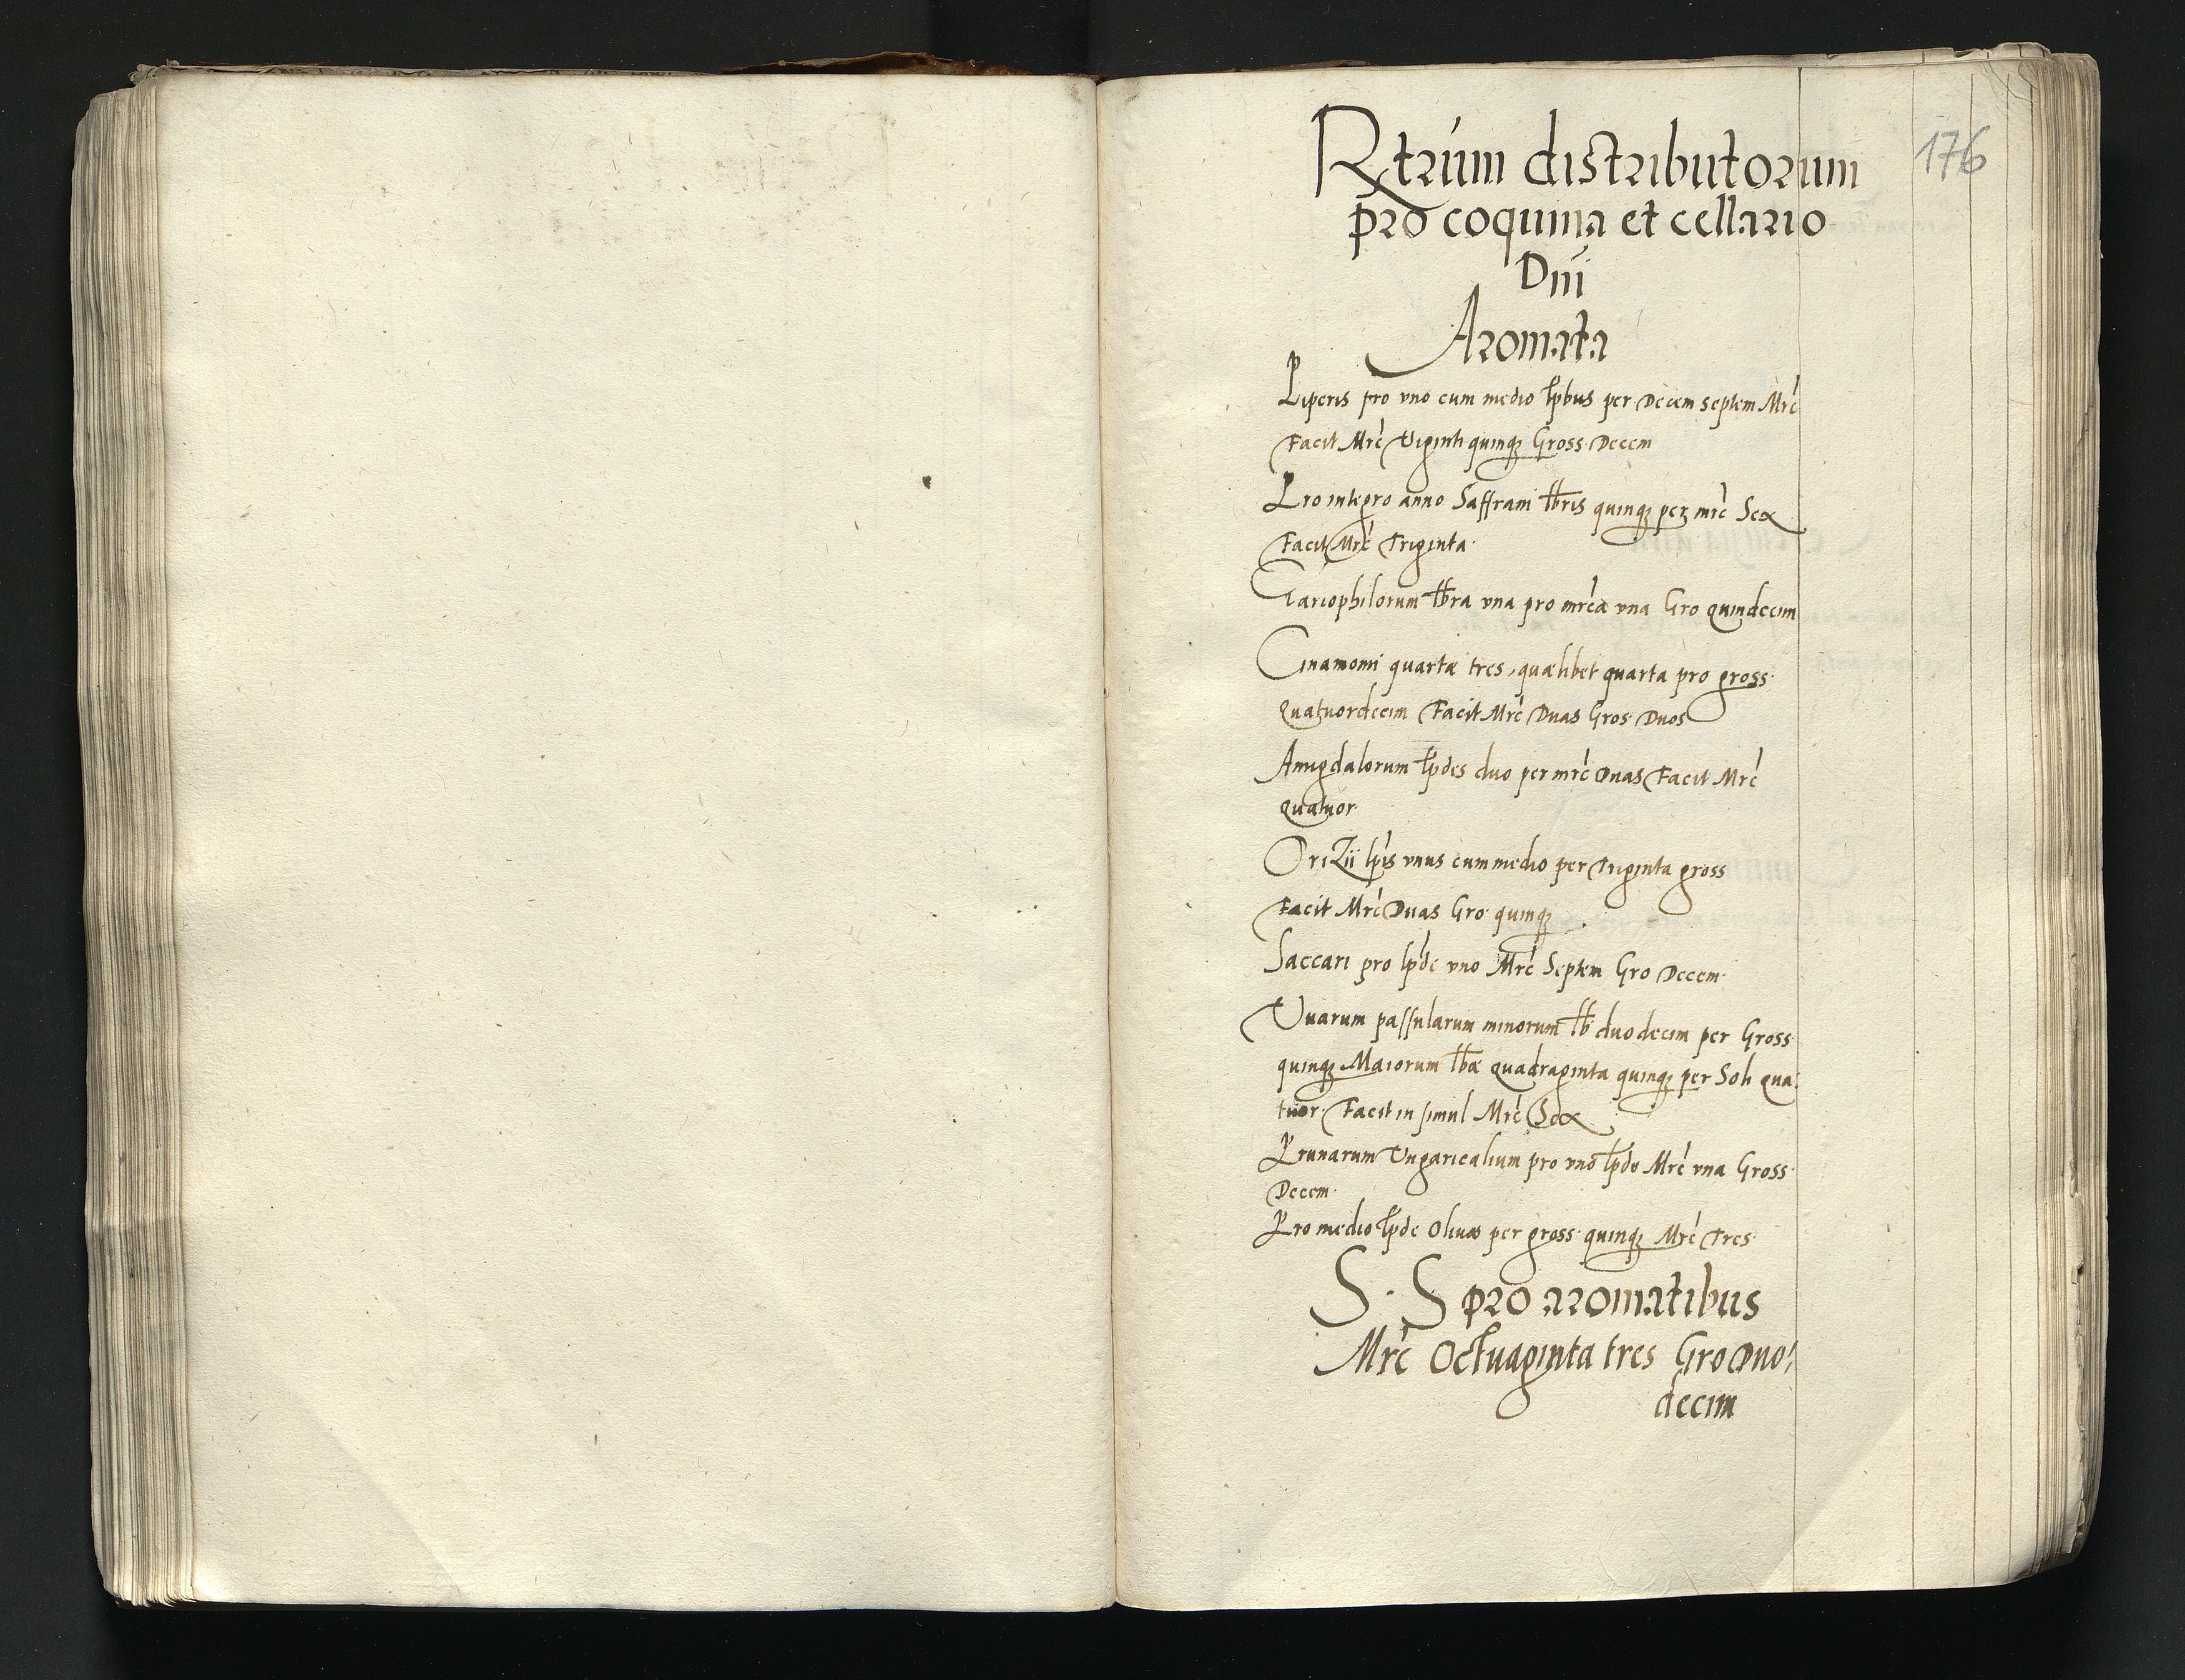 176
Rtrum distributorum
pro coquina et cellario
Dni
Aromata
Piperis pro uno cum medio lpbus per Decem septem Mrc
Facit Mrc Viginti quinq; Gross. Decem
Pro integro anno Saffrani lbris quinq; per mrc Sex
Facit Mrc Triginta.
Gariophilorum lbra una pro mrca una Gro quindecim
Cinamomi quartæ tres, quælibet quarta pro gross.
Quatuordecim Facit Mrc Duas Gros. Duos
Amigdalorum lpdes duo per mrc Duas Facit Mrc
quatuor.
Orizii lpis unus cum medio per Triginta gross
Facit Mrc Duas Gro. quinq;
Saccari pro lpde uno Mrc Septem Gro Decem.
Uuarum passularum minorum lb. duodecim per Gross.
quinq; Maiorum lbæ quadraginta quinq; per Soli qua,
tuor. Facit in simul Mrc Sex
Prunarum Ungaricalium pro uno lpde Mrc una Gross.
Decem.
Pro medio lpde Oliuæ per gross. quinq; Mrc Tres.
S. S pro aromatibus
Mrc Octuaginta tres Gro Duo,
decim